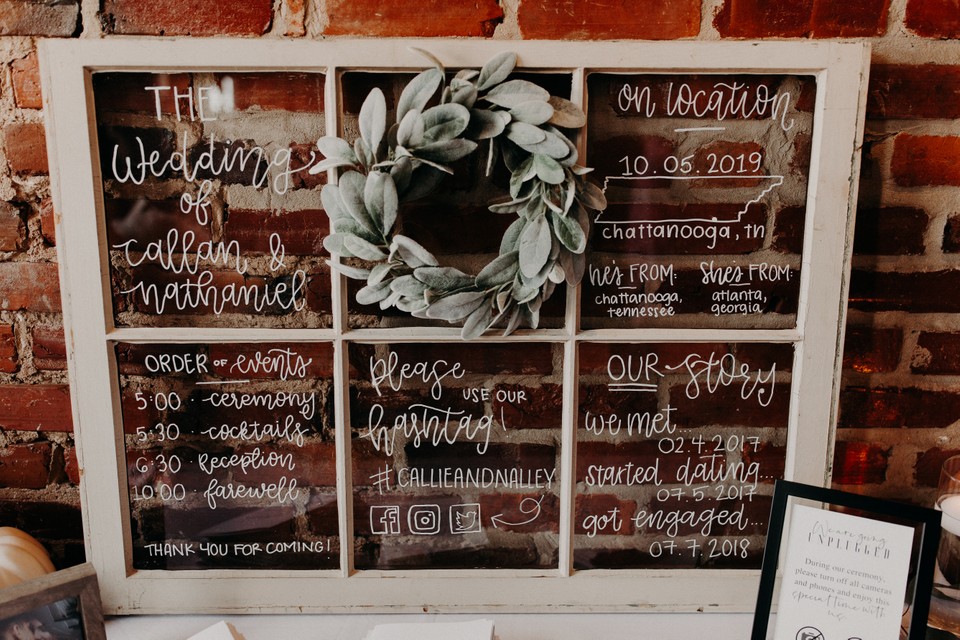 THE
wedding
of
callan &
nathaniel
on location
10.05.2019
chattanooga, tn
he's FROM:
chattanooga,
tennessee
she's FROM:
atlanta,
georgia
ORDER OF events
5:00 · ceremony
5:30 · cocktails
6:30 · reception
10:00 · farewell
THANK YOU FOR COMING!
please
USE OUR
hashtag!
#CALLIEANDNALLEY
OUR story
we met...
02.4.2017
started dating...
07.5.2017
got engaged...
07.7.2018
We are going
UNPLUGGED
During our ceremony,
please turn off all cameras
and phones and enjoy this
special time with
us